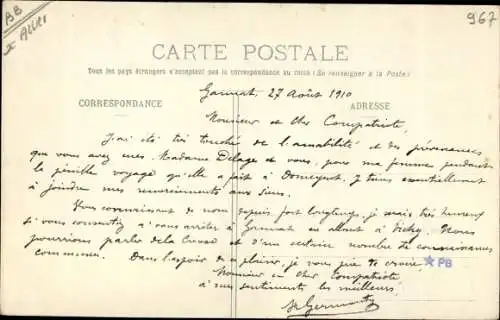 BB
F Allier
967
CARTE POSTALE
Tous les pays étrangers n'acceptent pas la correspondance au recto (Se renseigner à la Poste)
CORRESPONDANCE
ADRESSE
Gannat, 27 Août 1910
Monsieur et cher Compatriote,
J'ai été très touché de l'amabilité et des prévenances
que vous avez eues Madame Delage et vous, pour ma femme pendant
le pénible voyage qu'elle a fait à Domeyrat. Je tiens essentiellement
à joindre mes remerciements aux siens.
Vous connaissant de nom depuis fort longtemps, je serais très heureux
si vous consentiez à vous arrêter à Gannat en allant à Vichy. Nous
pourrions parler de la Creuse et d'un certain nombre de connaissances
communes. Dans l'espoir de ce plaisir, je vous prie de croire
PB
Monsieur et cher Compatriote
à mes sentiments les meilleurs